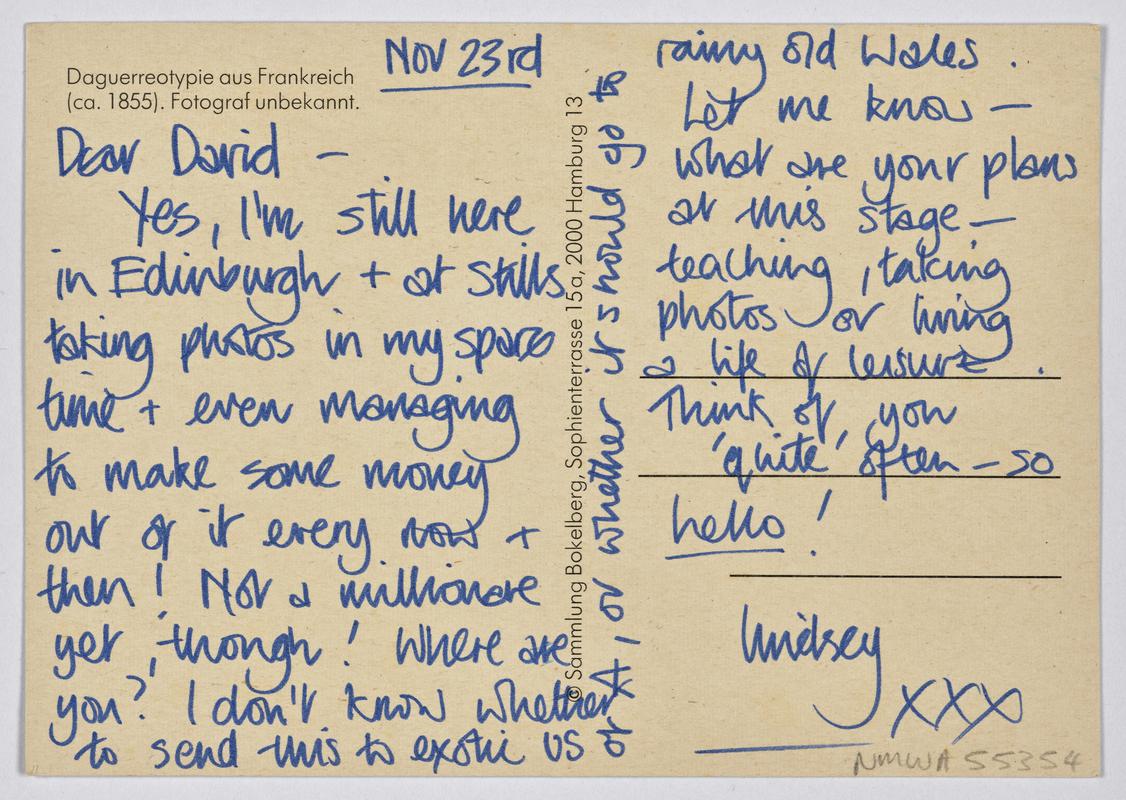 Daguerreotypie aus Frankreich
(ca. 1855). Fotograf unbekannt.
Nov 23rd
Dear David –
Yes, I'm still here
in Edinburgh + at Stills
taking photos in my spare
time + even managing
to make some money
out of it every now +
then! Not a millionare
yet, though! Where are
you? I don't know whether
to send this to exotic US
of A, or whether it should go to
© Sammlung Bokelberg, Sophienterrasse 15a, 2000 Hamburg 13
rainy old Wales.
Let me know –
what are your plans
at this stage –
teaching, taking
photos or living
a life of leisure.
Think of you
'quite' often – so
hello!
Lindsey
xxx
NMWA 55354